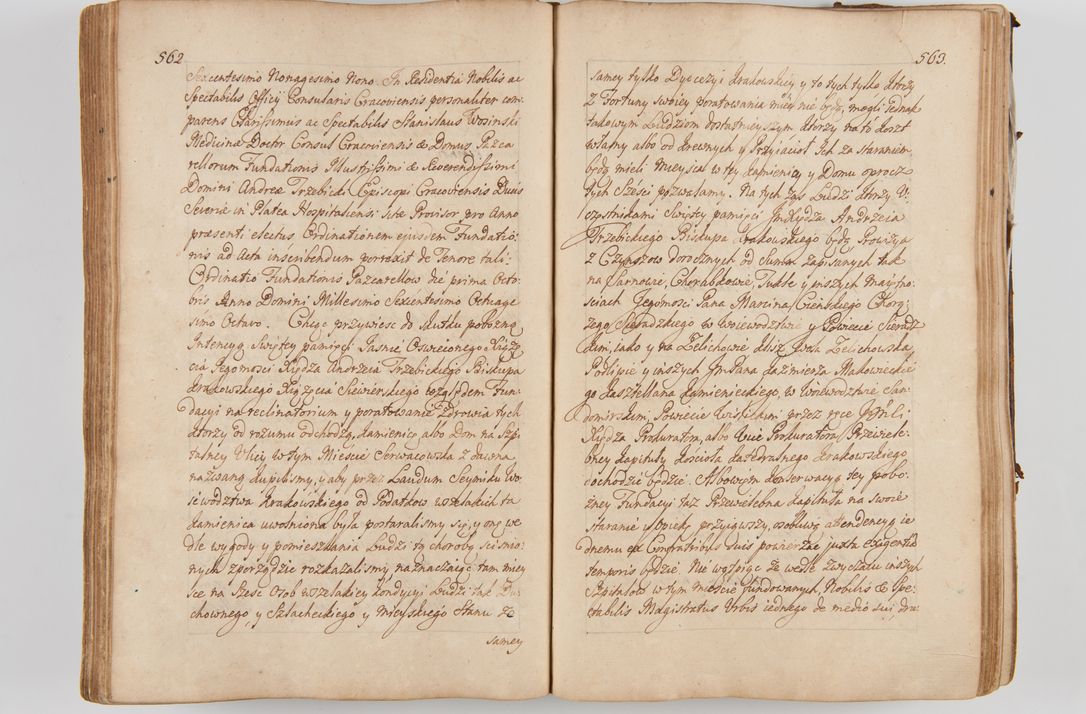 562
Sexcentesimo Nonagesimo Nono. In Residentia Nobilis ac
Spectabilis Officij Consularis Cracoviensis personaliter com
parens Clarissimus ac Spectabilis Stanislaus Wosinski
Medicinæ Doctor Consul Cracoviensis & Domus Pazca
rellorum Fundationis Illustrissimi & Reverendissimi
Domini Andreæ Trzebicki Episcopi Cracoviensis Ducis
Severiæ in Platea Hospitalensi sitæ Provisor pro Anno
præsenti electus Ordinationem ejusdem Fundatio:
nis ad Acta inscribendum porrexit de Tenore tali:
Ordinatio Fundationis Pazcarellow die prima Octo:
bris Anno Domini Millesimo Sexcentesimo Octuage
simo Octavo. Chcąc przywieść do skutku pobożną
Intencyą Swiętey pamięci Jasnie Oswieconego Xiązę
cia Jegomosci Xiędza Andrzeia Trzebickiego Biskupa
Krakowskiego Xiązęcia Siewierskiego względem Fun:
dacyi na reclinatorium y poratowanie zdrowia tych
ktorzy od rozumu odchodzą, kamienicę albo Dom na Szpi
talney Ulicy w tym Miescie Cerwacowska z dawna
nazwaną kupilismy, y aby przez Laudum Seymiku Wo:
iewodztwa Krakowskiego od Podatkow wszelakich ta
kamienica uwolniona była postaralismy się, y onę we
dle wygody y pomieszkania Ludzi tą chorobą scismio:
nych zporządzic rozkazalismy naznaczaiąc tam miey
sce na szesc Osob wszelakiey kondycyi Ludzi tak Du:
chownego, y Szlacheckiego y mieyskiego Stanu ze
samey
563.
samey tylko Dyecezyi Krakowskiey y to tych tylko ktorzy
z Fortuny swoiey poratowania miec nie będą, mogli iednak
takowym Ludziom dostatnieyszym ktorzy na to koszt
własny albo od krewnych y Przyiacioł Ich za staraniem
będą mieli Mieysca w tey kamienicy y Domu oprocz
tych Szesci pozwalamy. Na tych zas Ludzi ktorzy U:
częstnikami Swiętey pamięci JmXiędza Andrzeia
Trzebickiego Biskupa Krakowskiego będą Prowizya
z Czynszow dorocznych od Summ zapisanych tak
na Sarnowie, Chorabkowie, Tubke y inszych maiętno:
sciach Jegomosci Pana Marcina Cienskiego Chorą:
zego Sieradzkiego w Woiewodztwie y Powiecie Sieradz
kim, iako y na Zelichowie alisz Wola Zelichowska,
Podlipie y inszych JmPana Kazimierza Makowieckie
go Kasztellana Kamienieckiego, w Woiewodztwie San:
domirskim, Powiecie Wislickim przez ręce
Xiędza Prokuratora, albo Vice Prokuratora Przewiele
bney Kapituły Koscioła Katedralnego Krakowskiego
dochodzić będzie. Albowiem konserwacyą tey pobo:
zney Fundacyi taz Przewielebna Kapituła na swoie
staranie y opiekę przyiąwszy, osobliwą attendencyą ie
dnemu ex Confratribus suis powierzac juxta exigentiã
temporis będzie. Nie wątpiąc ze wedle zwyczaiu inszych
Szpitalow w tym miescie fundowanych, Nobilis & Spe:
ctabilis Magistratus Urbis iednego de medio sui, dru: